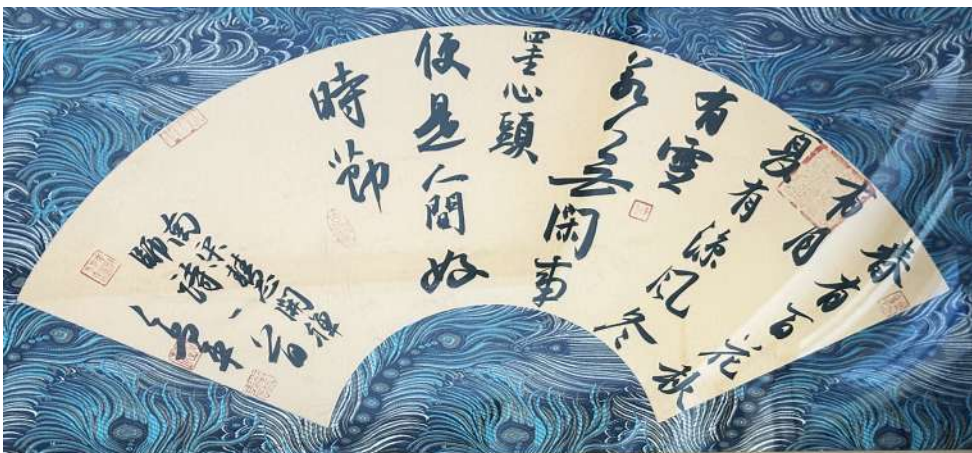 春有百花秋
有月
夏有涼风冬
有雪
若無閑事
罣心頭
便是人間好
時節
南宋慧開禪
師詩一首